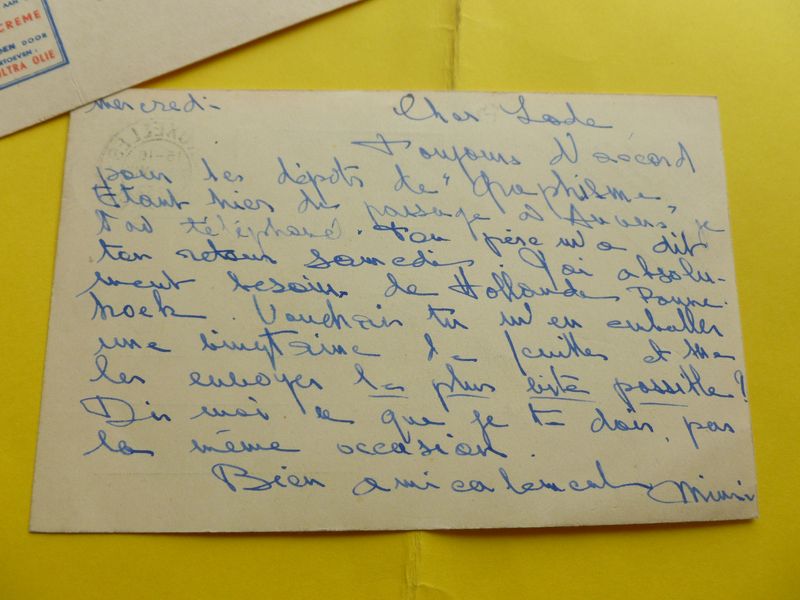 AAN
CREME
DEN DOOR
RTOEVEN.
ULTRA OLIE
mercredi-
Cher Lode
Toujours d'accord
pour les dépôts de "Graphisme"
Etant hier de passage à Anvers, je
t'ai téléphoné. Ton père m'a dit
ton retour samedi. J'ai absolu-
ment besoin de Hollande Panne-
koek. Voudrais tu m'en emballer
une vingtaine de feuilles et me
les envoyer le plus vite possible?
Dis moi ce que je te dois, par
la même occasion.
Bien amicalement